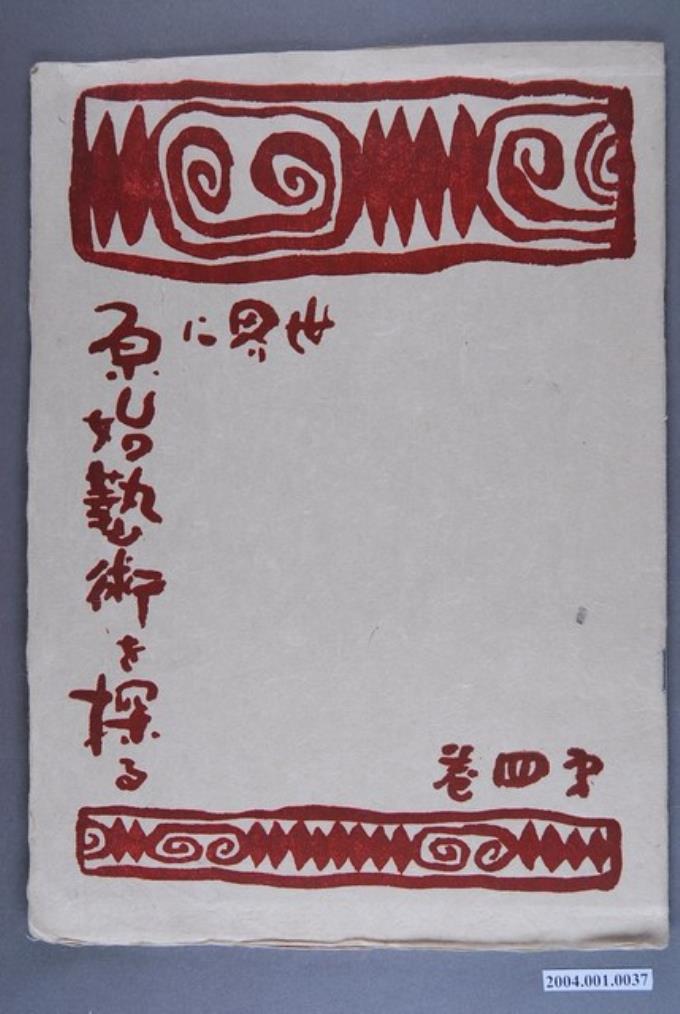 世界に
原始藝術を探る
第四巻
2004.001.0037